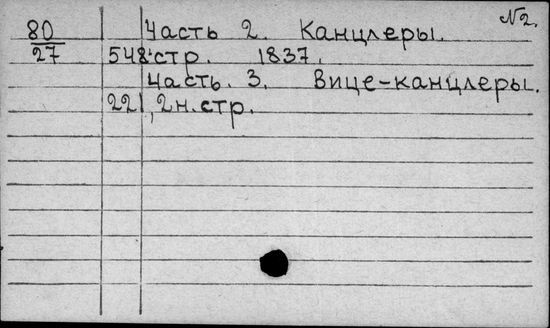 №2.
80 Часть 2. Канцлеры.
27 548 стр. 1837.
Часть. 3. Вице-канцлеры.
221, 2н. стр.